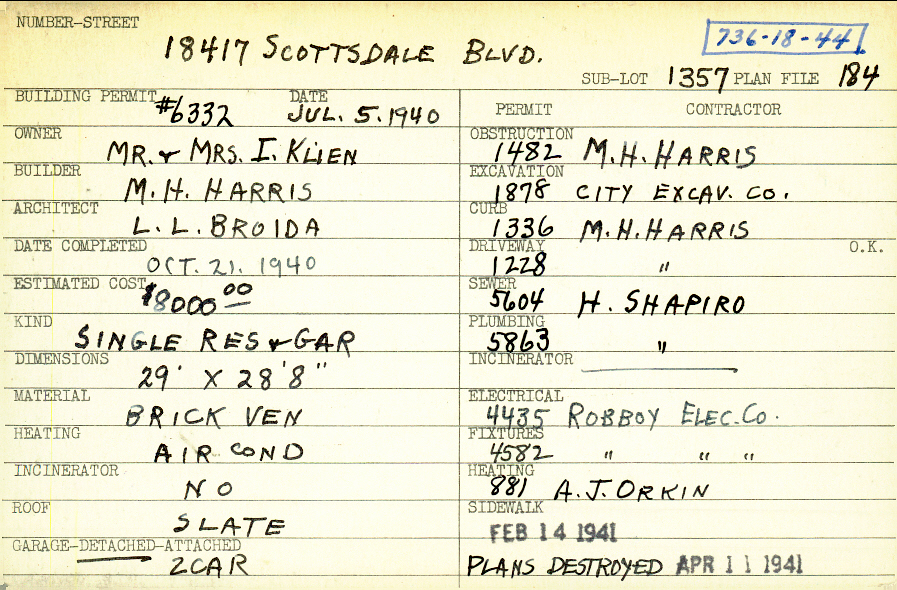 NUMBER-STREET
18417 SCOTTSDALE BLVD.
736-18-44
SUB-LOT 1357 PLAN FILE 184
BUILDING PERMIT #6332 DATE JUL. 5. 1940
OWNER MR. & MRS. I. KLIEN
BUILDER M. H. HARRIS
ARCHITECT L. L. BROIDA
DATE COMPLETED OCT. 21. 1940
ESTIMATED COST $8000 00
KIND SINGLE RES & GAR
DIMENSIONS 29' X 28'8"
MATERIAL BRICK VEN
HEATING AIR COND
INCINERATOR NO
ROOF SLATE
GARAGE-DETACHED-ATTACHED 2 CAR
PERMIT CONTRACTOR
OBSTRUCTION 1482 M. H. HARRIS
EXCAVATION 1878 CITY EXCAV. CO.
CURB 1336 M. H. HARRIS
DRIVEWAY 1228 " O.K.
SEWER 5604 H. SHAPIRO
PLUMBING 5863 "
INCINERATOR
ELECTRICAL 4435 ROBBOY ELEC. CO.
FIXTURES 4582 " " "
HEATING 881 A. J. ORKIN
SIDEWALK FEB 14 1941
PLANS DESTROYED APR 11 1941